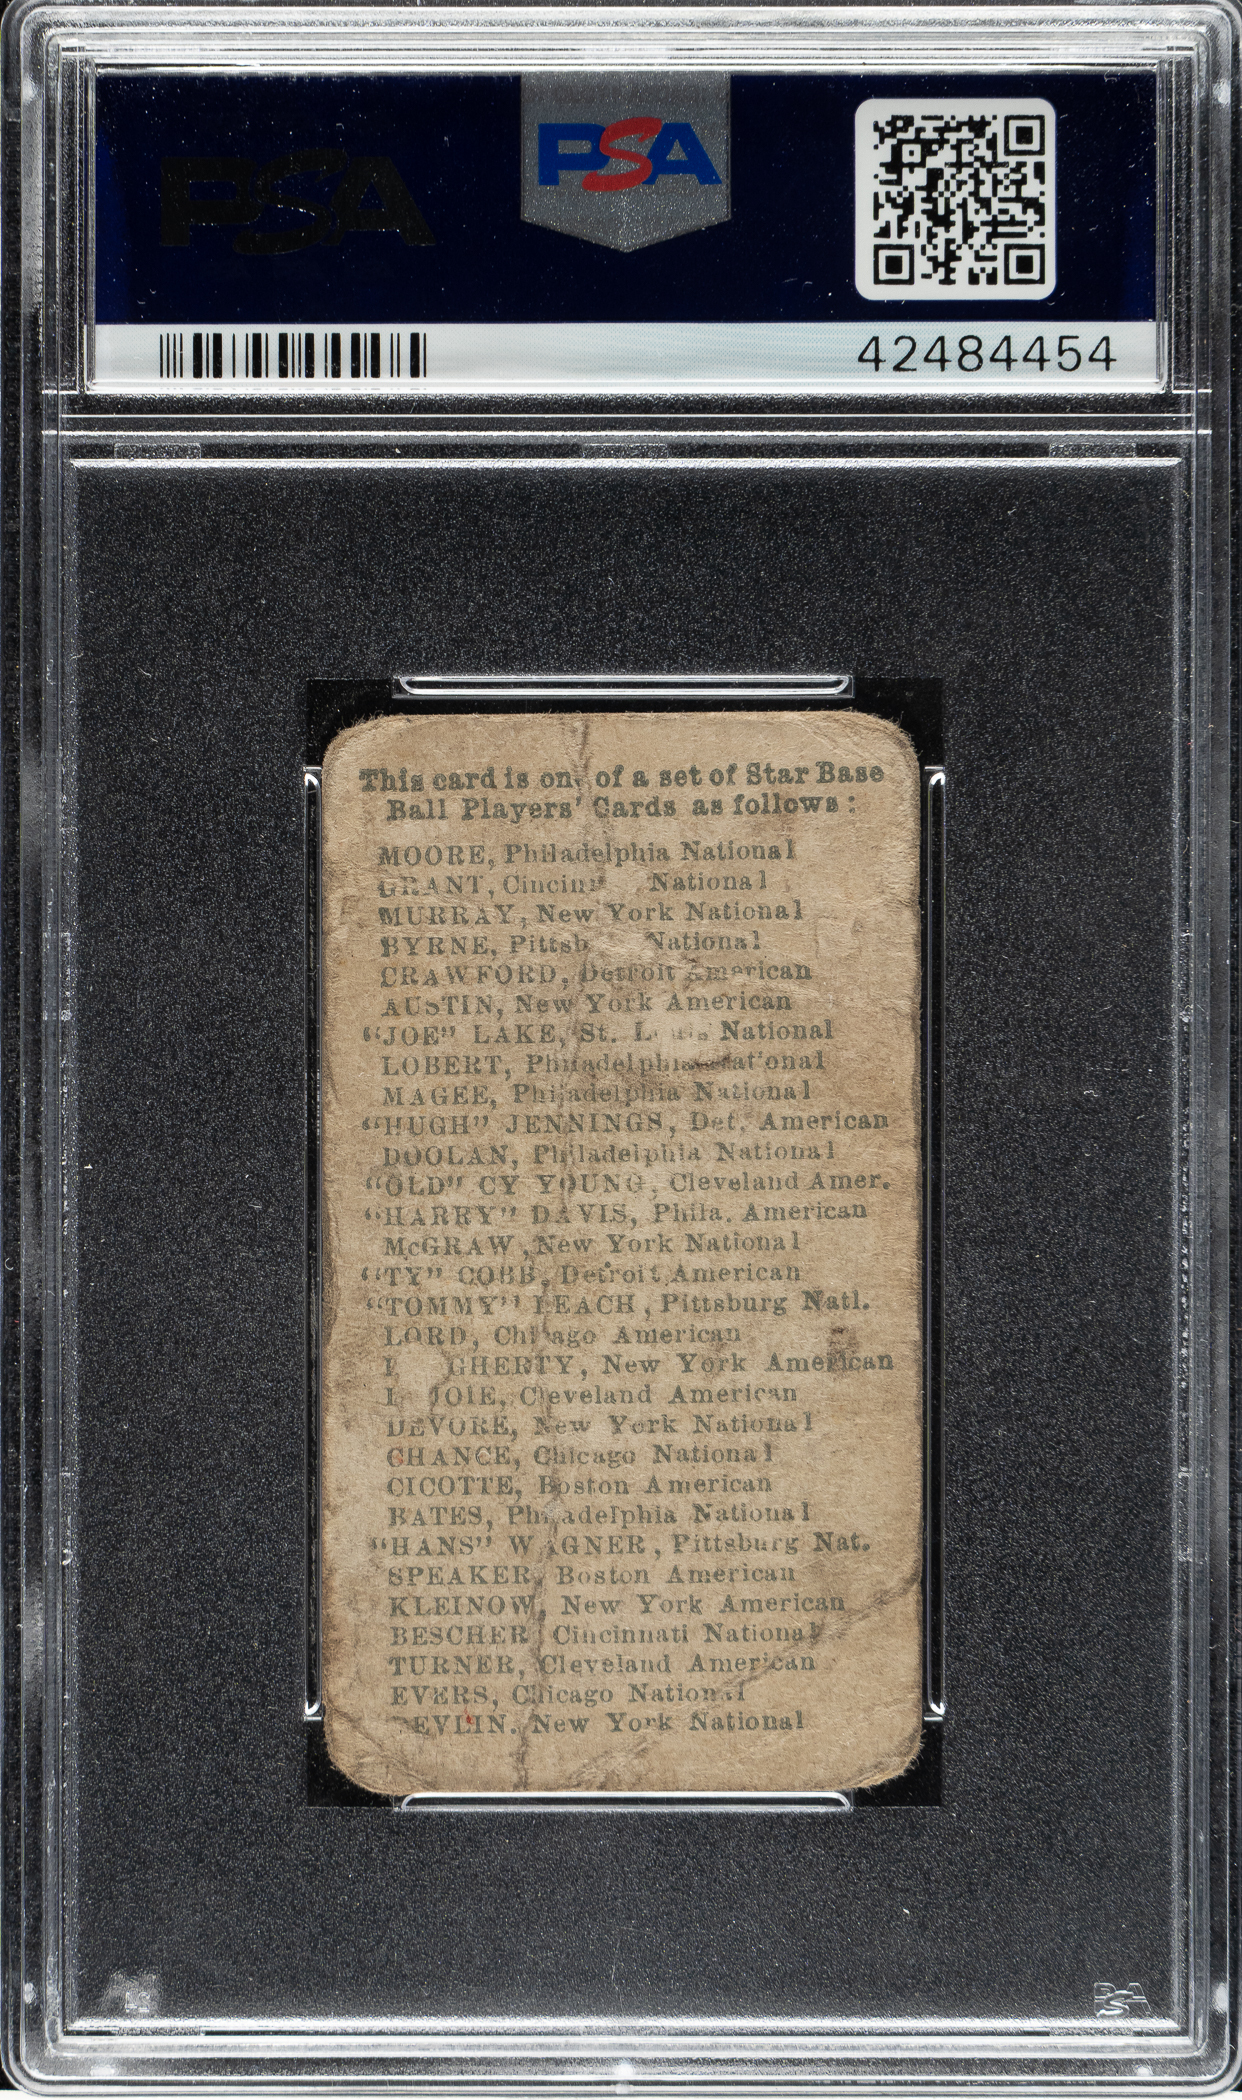 PSA
PSA
42484454
This card is one of a set of Star Base
Ball Players' Cards as follows:
MOORE, Philadelphia National
GRANT, Cincin National
MURRAY, New York National
BYRNE, Pittsb National
CRAWFORD, Detroit American
AUSTIN, New York American
"JOE" LAKE, St. National
LOBERT, Philadelphia National
MAGEE, Philadelphia National
"HUGH" JENNINGS, Det. American
DOOLAN, Philadelphia National
"OLD" CY YOUNG, Cleveland Amer.
"HARRY" DAVIS, Phila. American
McGRAW, New York National
"TY" COBB, Detroit American
"TOMMY" LEACH, Pittsburg Natl.
LORD, Chicago American
GHERTY, New York American
JOIE, Cleveland American
DEVORE, New York National
CHANCE, Chicago National
CICOTTE, Boston American
BATES, Philadelphia National
"HANS" WAGNER, Pittsburg Nat.
SPEAKER, Boston American
KLEINOW, New York American
BESCHER Cincinnati National
TURNER, Cleveland American
EVERS, Chicago National
DEVLIN, New York National
PSA